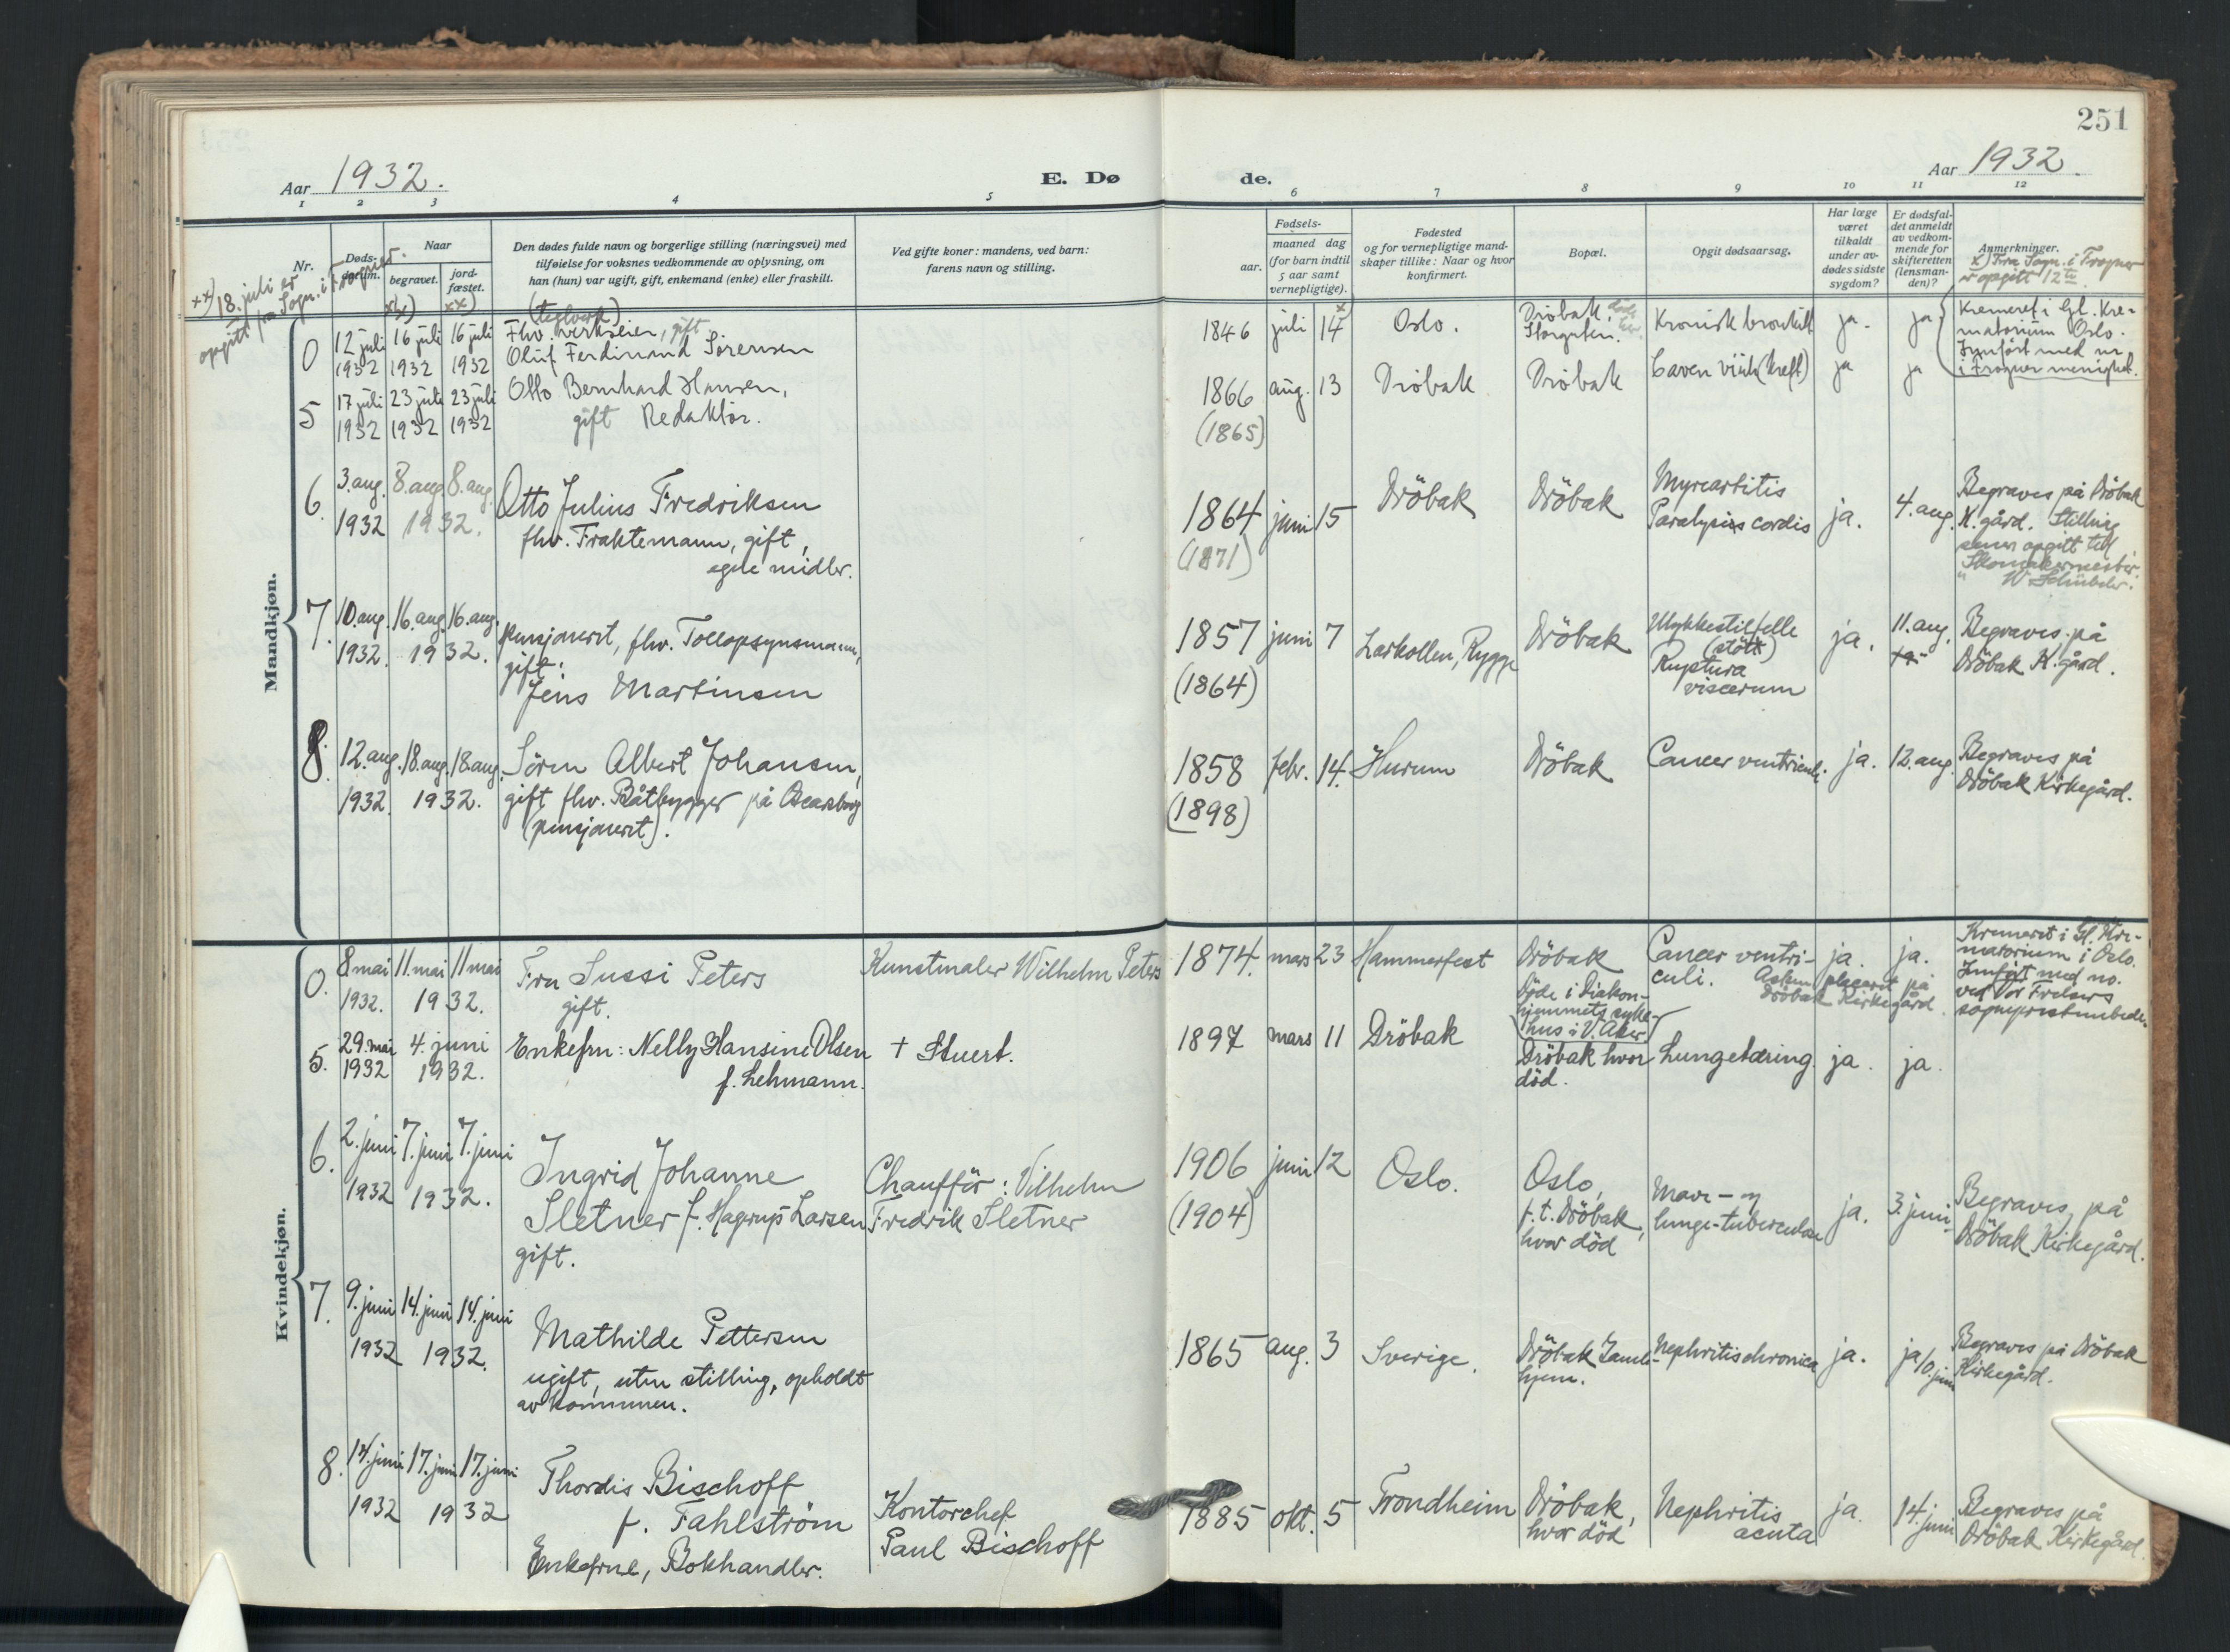 251
Aar 1932.
E. Dø
de.
Aar 1932.
1 2 3 4 5
6 7 8 9 10 11 12
Nr.
Døds-
datum.
Naar
begravet.
jord-
fæstet.
Den dødes fulde navn og borgerlige stilling (næringsvei) med
tilføielse for voksnes vedkommende av oplysning, om
han (hun) var ugift, gift, enkemand (enke) eller fraskilt.
Ved gifte koner: mandens, ved barn:
farens navn og stilling.
Fødsels-
aar.
maaned dag
(for barn indtil
5 aar samt
vernepligtige).
Fødested
og for vernepligtige mand-
skaper tillike: Naar og hvor
konfirmert.
Bopæl.
Opgit dødsaarsag.
Har læge
været
tilkaldt
under av-
dødes sidste
sygdom?
Er dødsfal-
det anmeldt
av vedkom-
mende for
skifteretten
(lensman-
den)?
Anmerkninger.
x) Fra Sogn. i Frogner
er opgitt 12te
xx) 18. juli er
opgitt fra Sogn. i Frogner.
xx) xx)
Mandkjøn.
0 12 juli 16 juli 16 juli
1932 1932 1932
(teglverk)
Fhv. verkseier, gift
Oluf Ferdinand Sörensen
1846 juli 14 x
Oslo.
Dröbak,
Storgaten.
Kronisk bronkitt
ja. ja
Kremeret i Gl. Kre-
matorium Oslo.
Innført med nr
i Frogner menighet.
5 17 juli 23 juli 23 juli
1932 1932 1932
Otto Bernhard Hansen,
gift Redaktör.
1866 aug. 13
(1865)
Dröbak Dröbak
(kreft)
ja ja
6. 3. aug. 8. aug. 8. aug.
1932 1932.
Otto Julius Fredriksen
fhv. Fraktemann, gift,
egne midler.
1864 juni 15
(1871)
Dröbak Dröbak
Paralysis cordis
ja. 4. aug.
Begraves på Dröbak
K. gård. Stilling
senere opgitt til
Skomakermester
W. Schübeler.
7. 10. aug. 16. aug. 16. aug.
1932. 1932.
pensjonert, fhv. Tollopsynsmann,
gift:
Jens Martinsen
1857 juni 7
(1864)
Larkollen, Rygge
Dröbak
Ulykkestilfelle
(stött)
Ruptura
viscerum
ja. 11. aug.
Begraves på
Dröbak K. gård.
8. 12. aug. 18. aug. 18. aug.
1932. 1932.
Sören Albert Johansen,
gift fhv. Båtbygger på Oscarsborg
(pensjonert).
1858 febr. 14.
(1898)
Hurum
Dröbak
Cancer ventriculi.
ja. 12. aug.
Begraves på
Dröbak Kirkegård.
Kvindekjøn.
0. 8 mai 11. mai 11 mai
1932. 1932.
Fru Sussi Peters
gift.
Kunstmaler Wilhelm Peters
1874. mars 23
Hammerfest
Dröbak
Döde i Diakon-
hjemmets syke-
hus i V. Aker
Cancer ventri-
culi.
Asken plasert på
Dröbak Kirkegård.
ja. ja.
Kremeret i Gl. Kre-
matorium i Oslo.
Innfört med no.
ved Vår Frelsers
sogneprestembede.
5. 29. mai 4. juni
1932 1932.
Enkefru: Nelly Hansine Olsen
f. Lehmann.
+ Stuert.
1897 mars 11
Dröbak
Dröbak hvor
död.
Lungetæring.
ja. ja.
6. 2. juni 7. juni 7. juni
1932 1932.
Ingrid Johanne
Sletner f. Hagerup Larsen
gift.
Chaufför: Vilhelm
Fredrik Sletner
1906 juni 12
(1904)
Oslo.
Oslo,
f.t. Dröbak,
hvor död
Mave- og
lunge-tuberculose
ja. 3. juni
Begraves på
Dröbak Kirkegård.
7. 9. juni 14. juni 14. juni
1932 1932.
Mathilde Pettersen
ugift, uten stilling, opholdt
av kommunen.
1865 aug. 3
Sverige.
Dröbak Gamle-
hjem.
Nephritis chronica
ja. ja 10. juni
Begraves på Dröbak
Kirkegård.
8. 14. juni 17. juni 17. juni
1932 1932
Thordis Bischoff
f. Fahlström
Enkefrue, Bokhandler.
Kontorchef
Paul Bischoff
1885 okt. 5
Trondheim
Dröbak,
hvor död
Nephritis
acuta
ja. 14. juni
Begraves på
Dröbak Kirkegård.